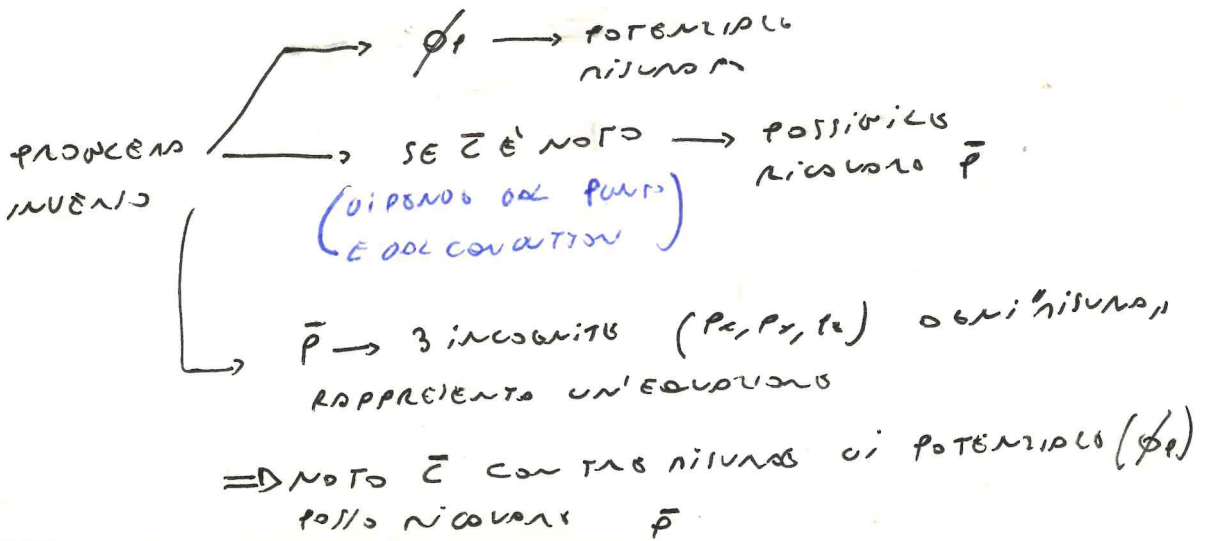 PROBLEMA
INVERSO
ϕP → POTENZIALE
MISURATO
SE C̄ È NOTO → POSSIBILE
RICAVARE P̄
(DIPENDE DAL PUNTO
E DAL CONDUTTORE)
P̄ → 3 INCOGNITE (Px, Py, Pz) OGNI "MISURA"
RAPPRESENTA UN'EQUAZIONE
⇒ NOTO C̄ CON TRE MISURE DI POTENZIALE (ϕP)
POSSO RICAVARE P̄